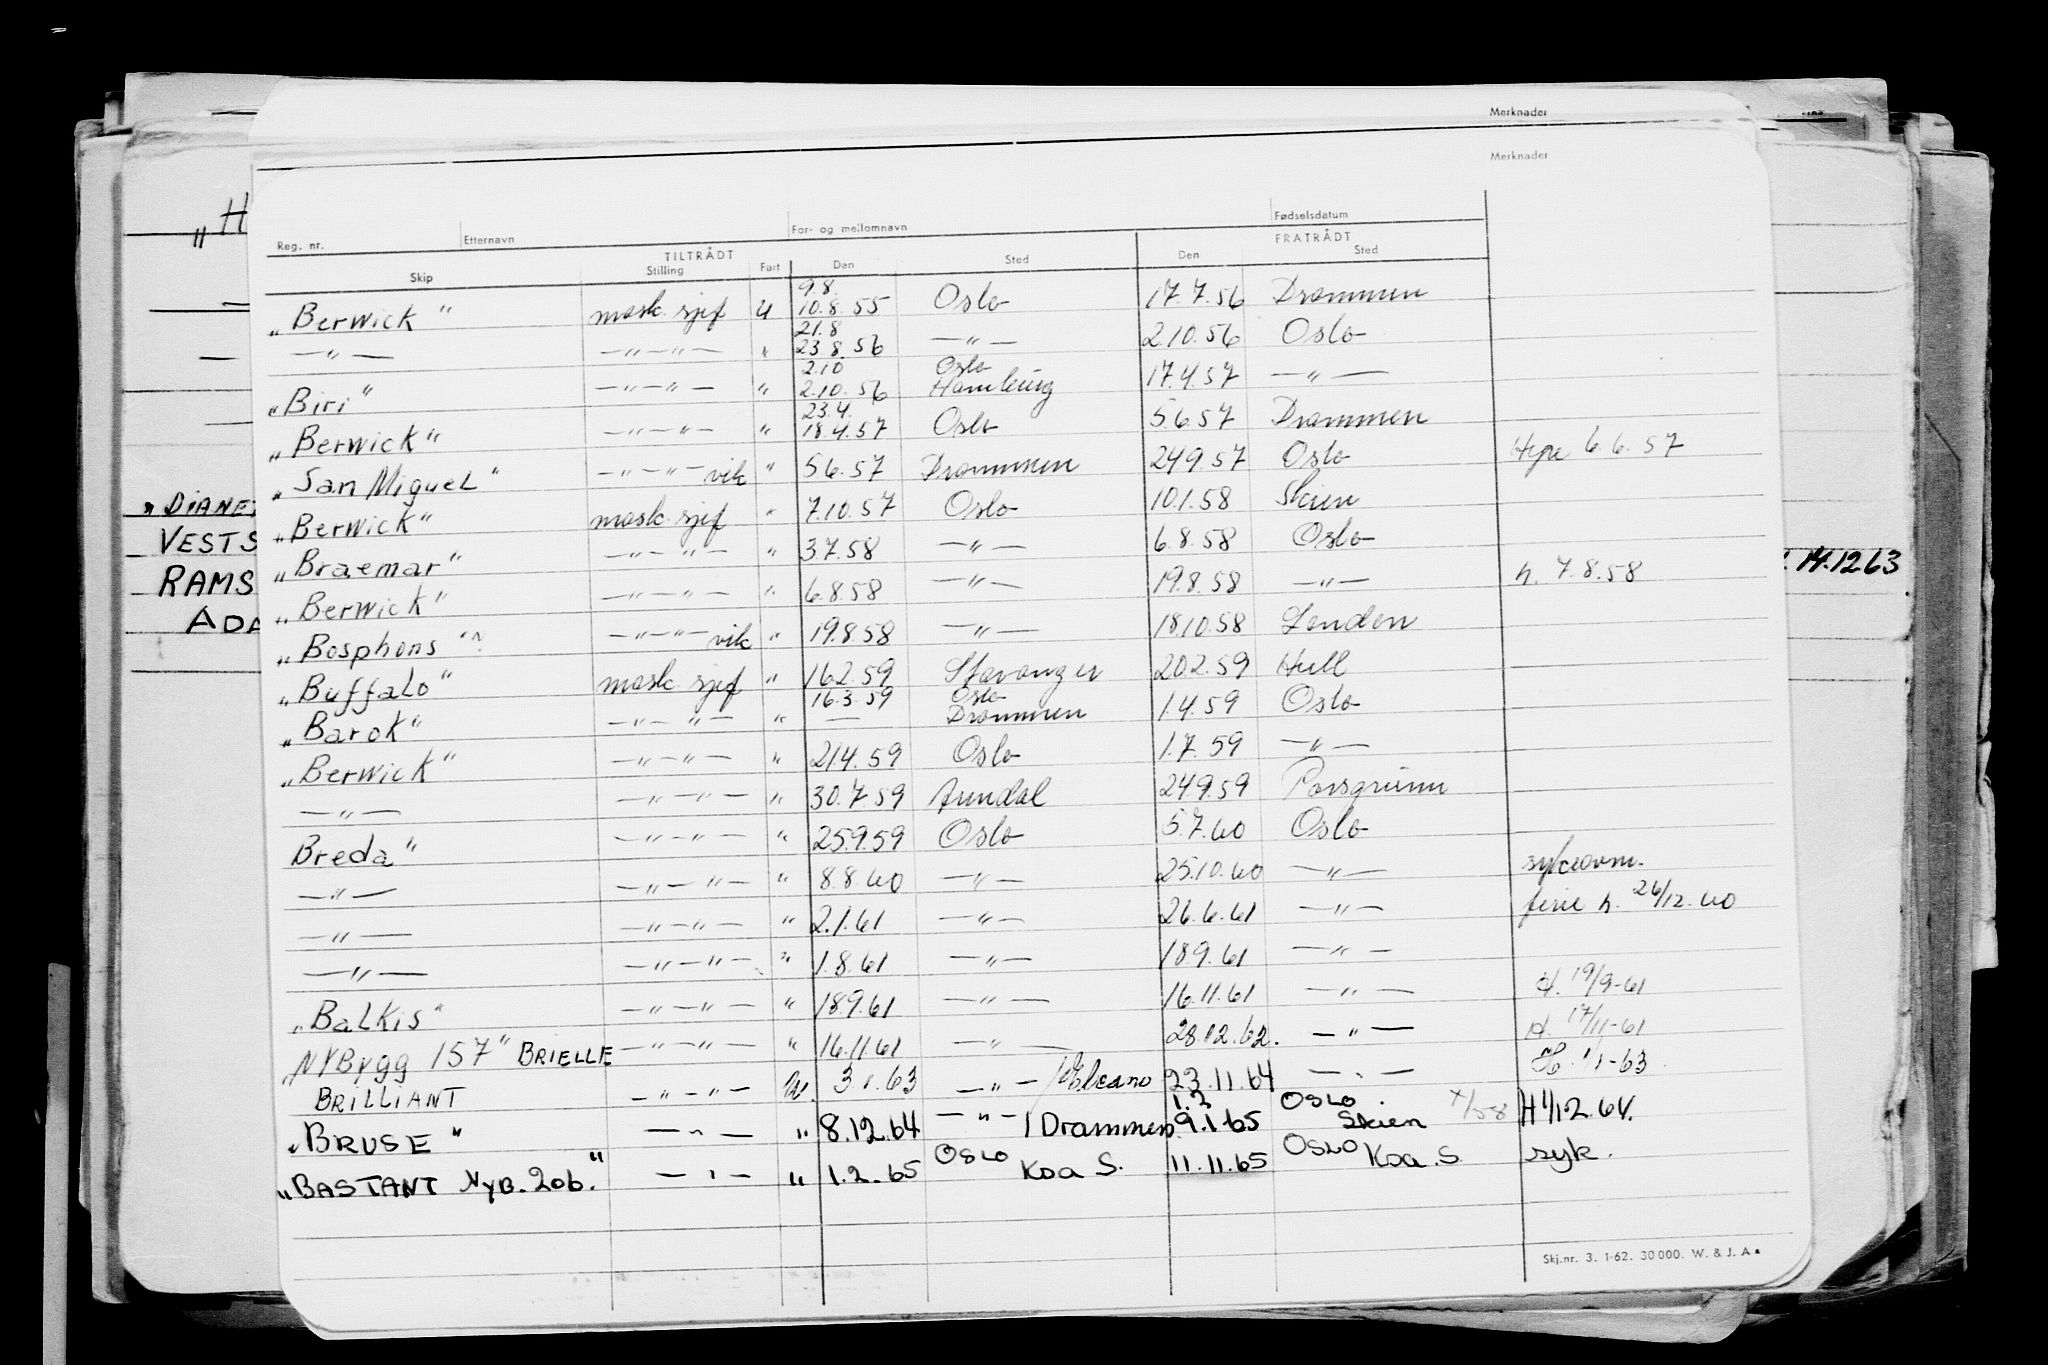 Merknader
Merknader
Reg. nr. Etternavn For- og mellomnavn Fødselsdatum
TILTRÅDT FRATRÅDT
Skip Stilling Fart Den Sted Den Sted
9.8.
„Berwick" mask. sjef U 10.8.55 Oslo 17.7.56 Drammen
21.8
—"— —"—"— " 23.8.56 —"— 2.10.56 Oslo
2.10 Oslo
„Biri" —"—"— " 2.10.56 Hamburg 17.4.57 —"—
23.4.
„Berwick" —"—"— " 18.4.57 Oslo 5.6.57 Drammen
„San Miguel" —"—"— vik " 5.6.57 Drammen 24.9.57 Oslo Hyre 6.6.57
„Berwick" mask. sjef " 7.10.57 Oslo 10.1.58 Skien
„Braemar" —"—"— " 3.7.58 —"— 6.8.58 Oslo
„Berwick" —"—"— " 6.8.58 —"— 19.8.58 —"— h. 7.8.58
„Bosphons"? —"—"— vik " 19.8.58 —"— 18.10.58 London
„Buffalo" mask. sjef " 16.2.59 Stavanger 20.2.59 Hull
16.3.59 Oslo
„Barok" —"—"— " — Drammen 1.4.59 Oslo
„Berwick" —"—"— " 21.4.59 Oslo 1.7.59 —"—
—"— —"—"— " 30.7.59 Arendal 24.9.59 Porsgrunn
Breda" —"—"— " 25.9.59 Oslo 5.7.60 Oslo
—"— —"—"— " 8.8.60 —"— 25.10.60 —"— sykeavm.
—"— —"—"— " 2.1.61 —"— 26.6.61 —"— ferie h. 26/12.60
—"— —"—"— " 1.8.61 —"— 18.9.61 —"—
„Balkis" —"—"— " 18.9.61 —"— 16.11.61 —"— H. 19/9-61
„NYBygg 157" BRIELLE —"—"— " 16.11.61 —"— 28.12.62. —"— H. 17/11-61
BRILLIANT —"—"— U. 3.1.63 —"— / 23.11.64 —"— H. 1/1-63
1.2 OSLO
„BRUSE" —"— " 8.12.64 —"— / Drammen 9.1.65 Skien H 1/12.64.
„BASTANT NYB. 206." —"— " 1.2.65 OSLO Koa S. 11.11.65 OSLO Koa. S syk.
Skj.nr. 3. 1-62. 30 000. W. & J. A.
„H
„DIANE
VESTS
RAMS 14.12.63
ADA